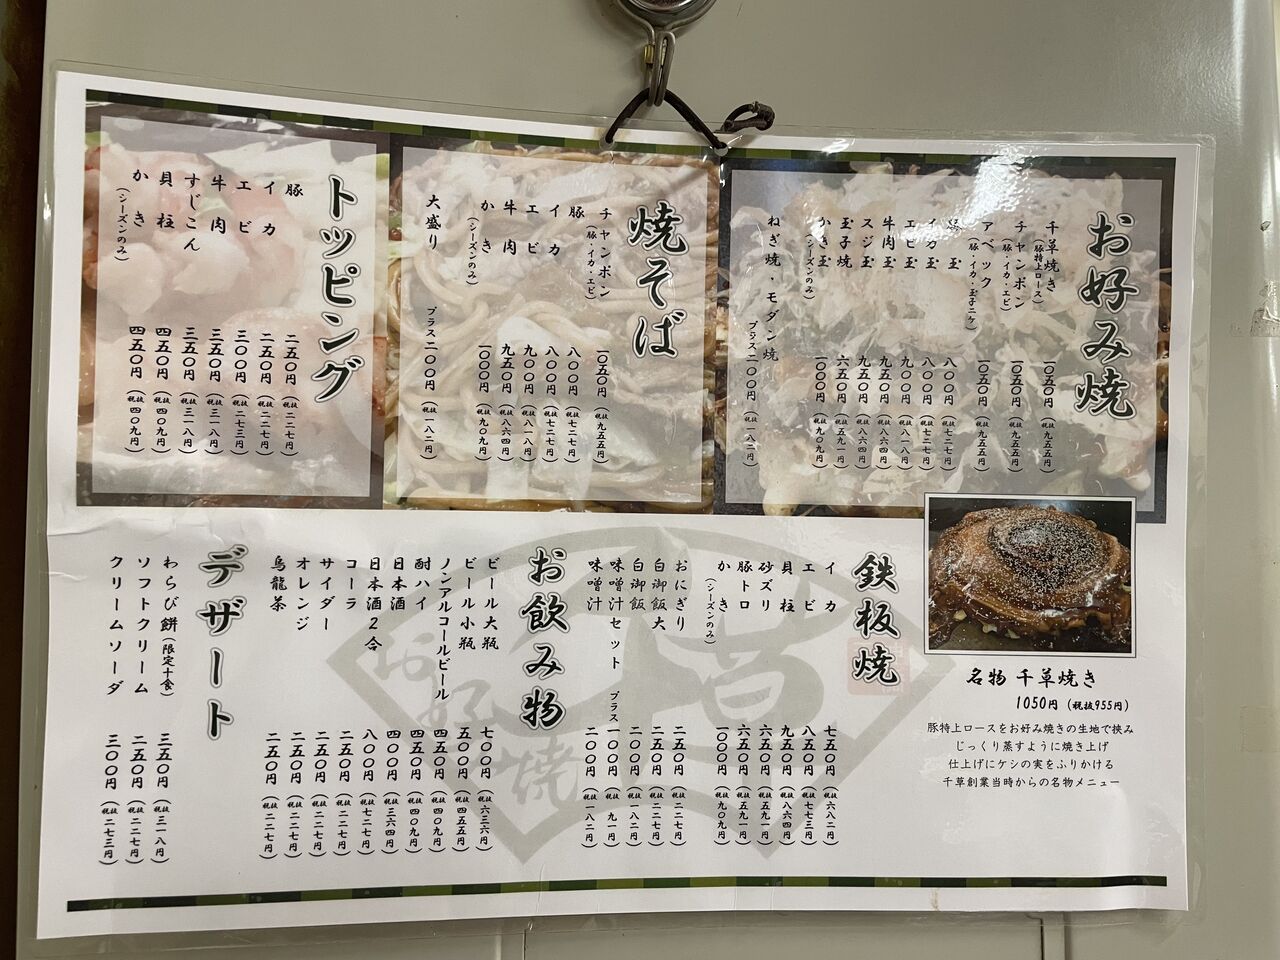 お好み焼
千草焼き
(豚特上ロース)
一〇五〇円(税抜 九五五円)
チャンポン
(豚・イカ・エビ)
一〇五〇円(税抜 九五五円)
アベック
(豚・イカ・玉子ニケ)
一〇五〇円(税抜 九五五円)
豚玉 八〇〇円(税抜 七二七円)
イカ玉 八〇〇円(税抜 七二七円)
エビ玉 九〇〇円(税抜 八一八円)
牛肉玉 九五〇円(税抜 八六四円)
スジ玉 九五〇円(税抜 八六四円)
玉子焼 六五〇円(税抜 五九一円)
かき玉
(シーズンのみ)
一〇〇〇円(税抜 九〇九円)
ねぎ焼・モダン焼 プラス二〇〇円(税抜 一八二円)
焼そば
チャンポン
(豚・イカ・エビ)
一〇五〇円(税抜 九五五円)
豚 八〇〇円(税抜 七二七円)
イカ 八〇〇円(税抜 七二七円)
エビ 九〇〇円(税抜 八一八円)
牛肉 九五〇円(税抜 八六四円)
かき
(シーズンのみ)
一〇〇〇円(税抜 九〇九円)
大盛り プラス二〇〇円(税抜 一八二円)
トッピング
豚 二五〇円(税抜 二二七円)
イカ 二五〇円(税抜 二二七円)
エビ 三〇〇円(税抜 二七三円)
牛肉 三五〇円(税抜 三一八円)
すじこん 三五〇円(税抜 三一八円)
貝柱 四五〇円(税抜 四〇九円)
かき
(シーズンのみ)
四五〇円(税抜 四〇九円)
名物 千草焼き
1050円(税抜955円)
豚特上ロースをお好み焼きの生地で挟み
じっくり蒸すように焼き上げ
仕上げにケシの実をふりかける
千草創業当時からの名物メニュー
鉄板焼
イカ 七五〇円(税抜 六八二円)
エビ 八五〇円(税抜 七七三円)
貝柱 九五〇円(税抜 八六四円)
砂ズリ 六五〇円(税抜 五九一円)
豚トロ 六五〇円(税抜 五九一円)
かき
(シーズンのみ)
一〇〇〇円(税抜 九〇九円)
おにぎり 二五〇円(税抜 二二七円)
白御飯大 二五〇円(税抜 二二七円)
白御飯 二〇〇円(税抜 一八二円)
味噌汁セット プラス一〇〇円(税抜 九一円)
味噌汁 二〇〇円(税抜 一八二円)
お飲み物
ビール大瓶 七〇〇円(税抜 六三六円)
ビール小瓶 五〇〇円(税抜 四五五円)
ノンアルコールビール 四五〇円(税抜 四〇九円)
酎ハイ 四五〇円(税抜 四〇九円)
日本酒 四〇〇円(税抜 三六四円)
日本酒2合 八〇〇円(税抜 七二七円)
コーラ 二五〇円(税抜 二二七円)
サイダー 二五〇円(税抜 二二七円)
オレンジ 二五〇円(税抜 二二七円)
烏龍茶 二五〇円(税抜 二二七円)
デザート
わらび餅(限定十食) 三五〇円(税抜 三一八円)
ソフトクリーム 二五〇円(税抜 二二七円)
クリームソーダ 三〇〇円(税抜 二七三円)